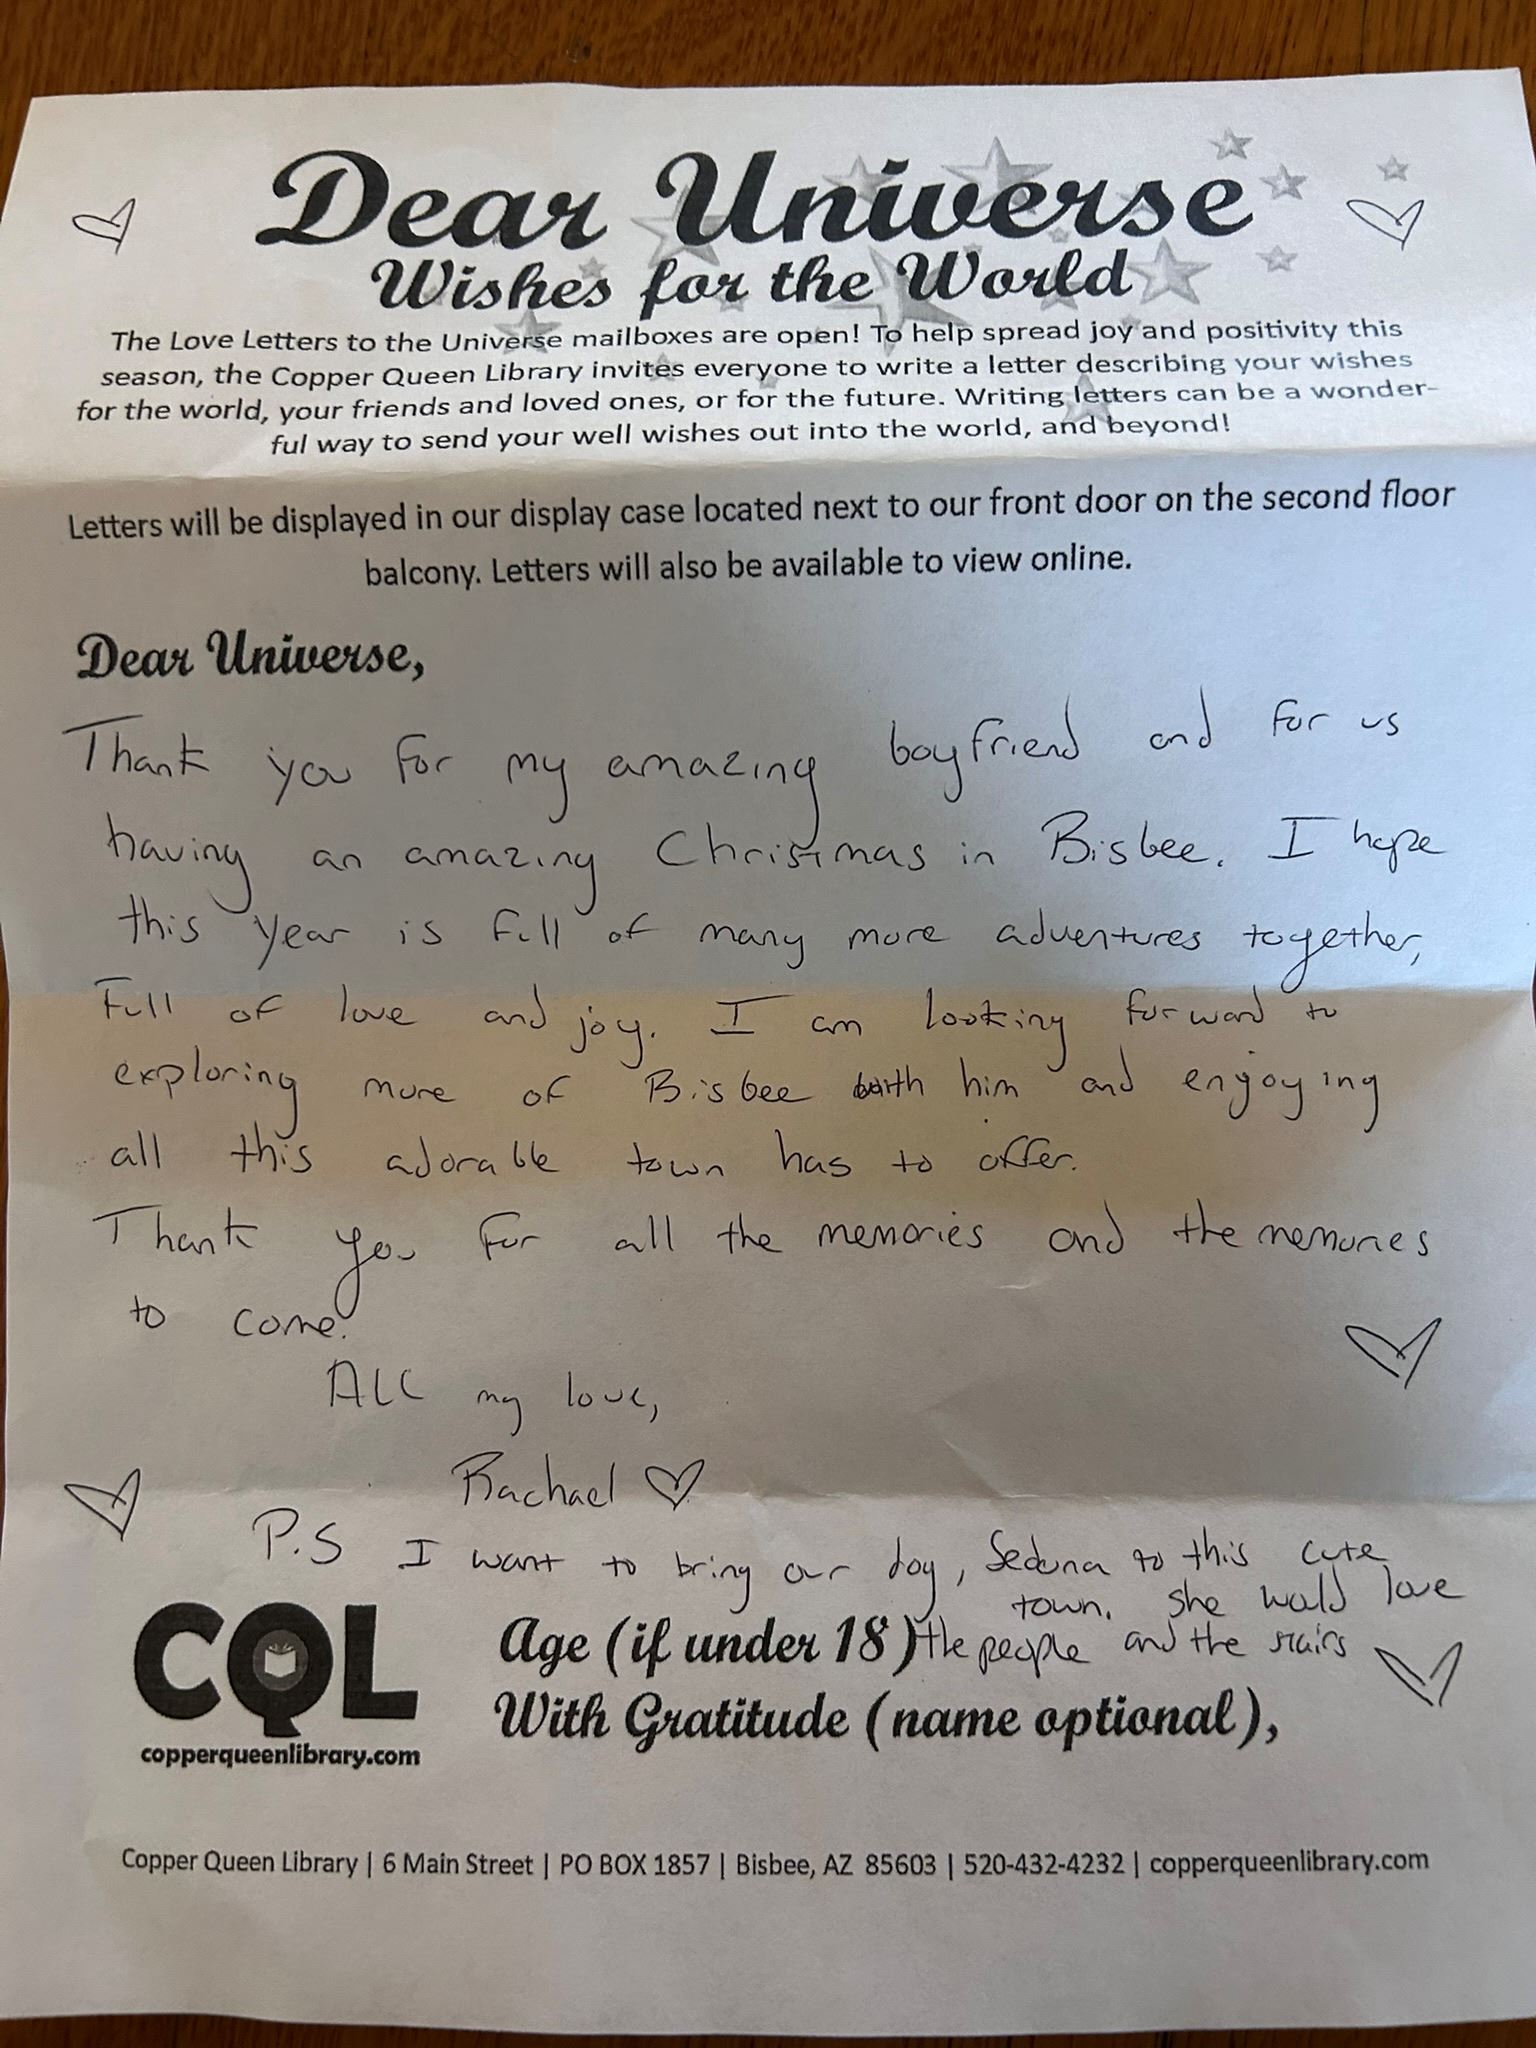 Dear Universe
Wishes for the World
The Love Letters to the Universe mailboxes are open! To help spread joy and positivity this
season, the Copper Queen Library invites everyone to write a letter describing your wishes
for the world, your friends and loved ones, or for the future. Writing letters can be a wonder-
ful way to send your well wishes out into the world, and beyond!
Letters will be displayed in our display case located next to our front door on the second floor
balcony. Letters will also be available to view online.
Dear Universe,
Thank you for my amazing boyfriend and for us
having an amazing Christmas in Bisbee. I hope
this year is full of many more adventures together,
Full of love and joy. I am looking forward to
exploring more of Bisbee with him and enjoying
all this adorable town has to offer.
Thank you for all the memories and the memories
to come.
All my love,
Rachael
P.S I want to bring our dog, Sedona to this cute
town. She would love
the people and the stairs
CQL
copperqueenlibrary.com
Age (if under 18)
With Gratitude (name optional),
Copper Queen Library | 6 Main Street | PO BOX 1857 | Bisbee, AZ 85603 | 520-432-4232 | copperqueenlibrary.com